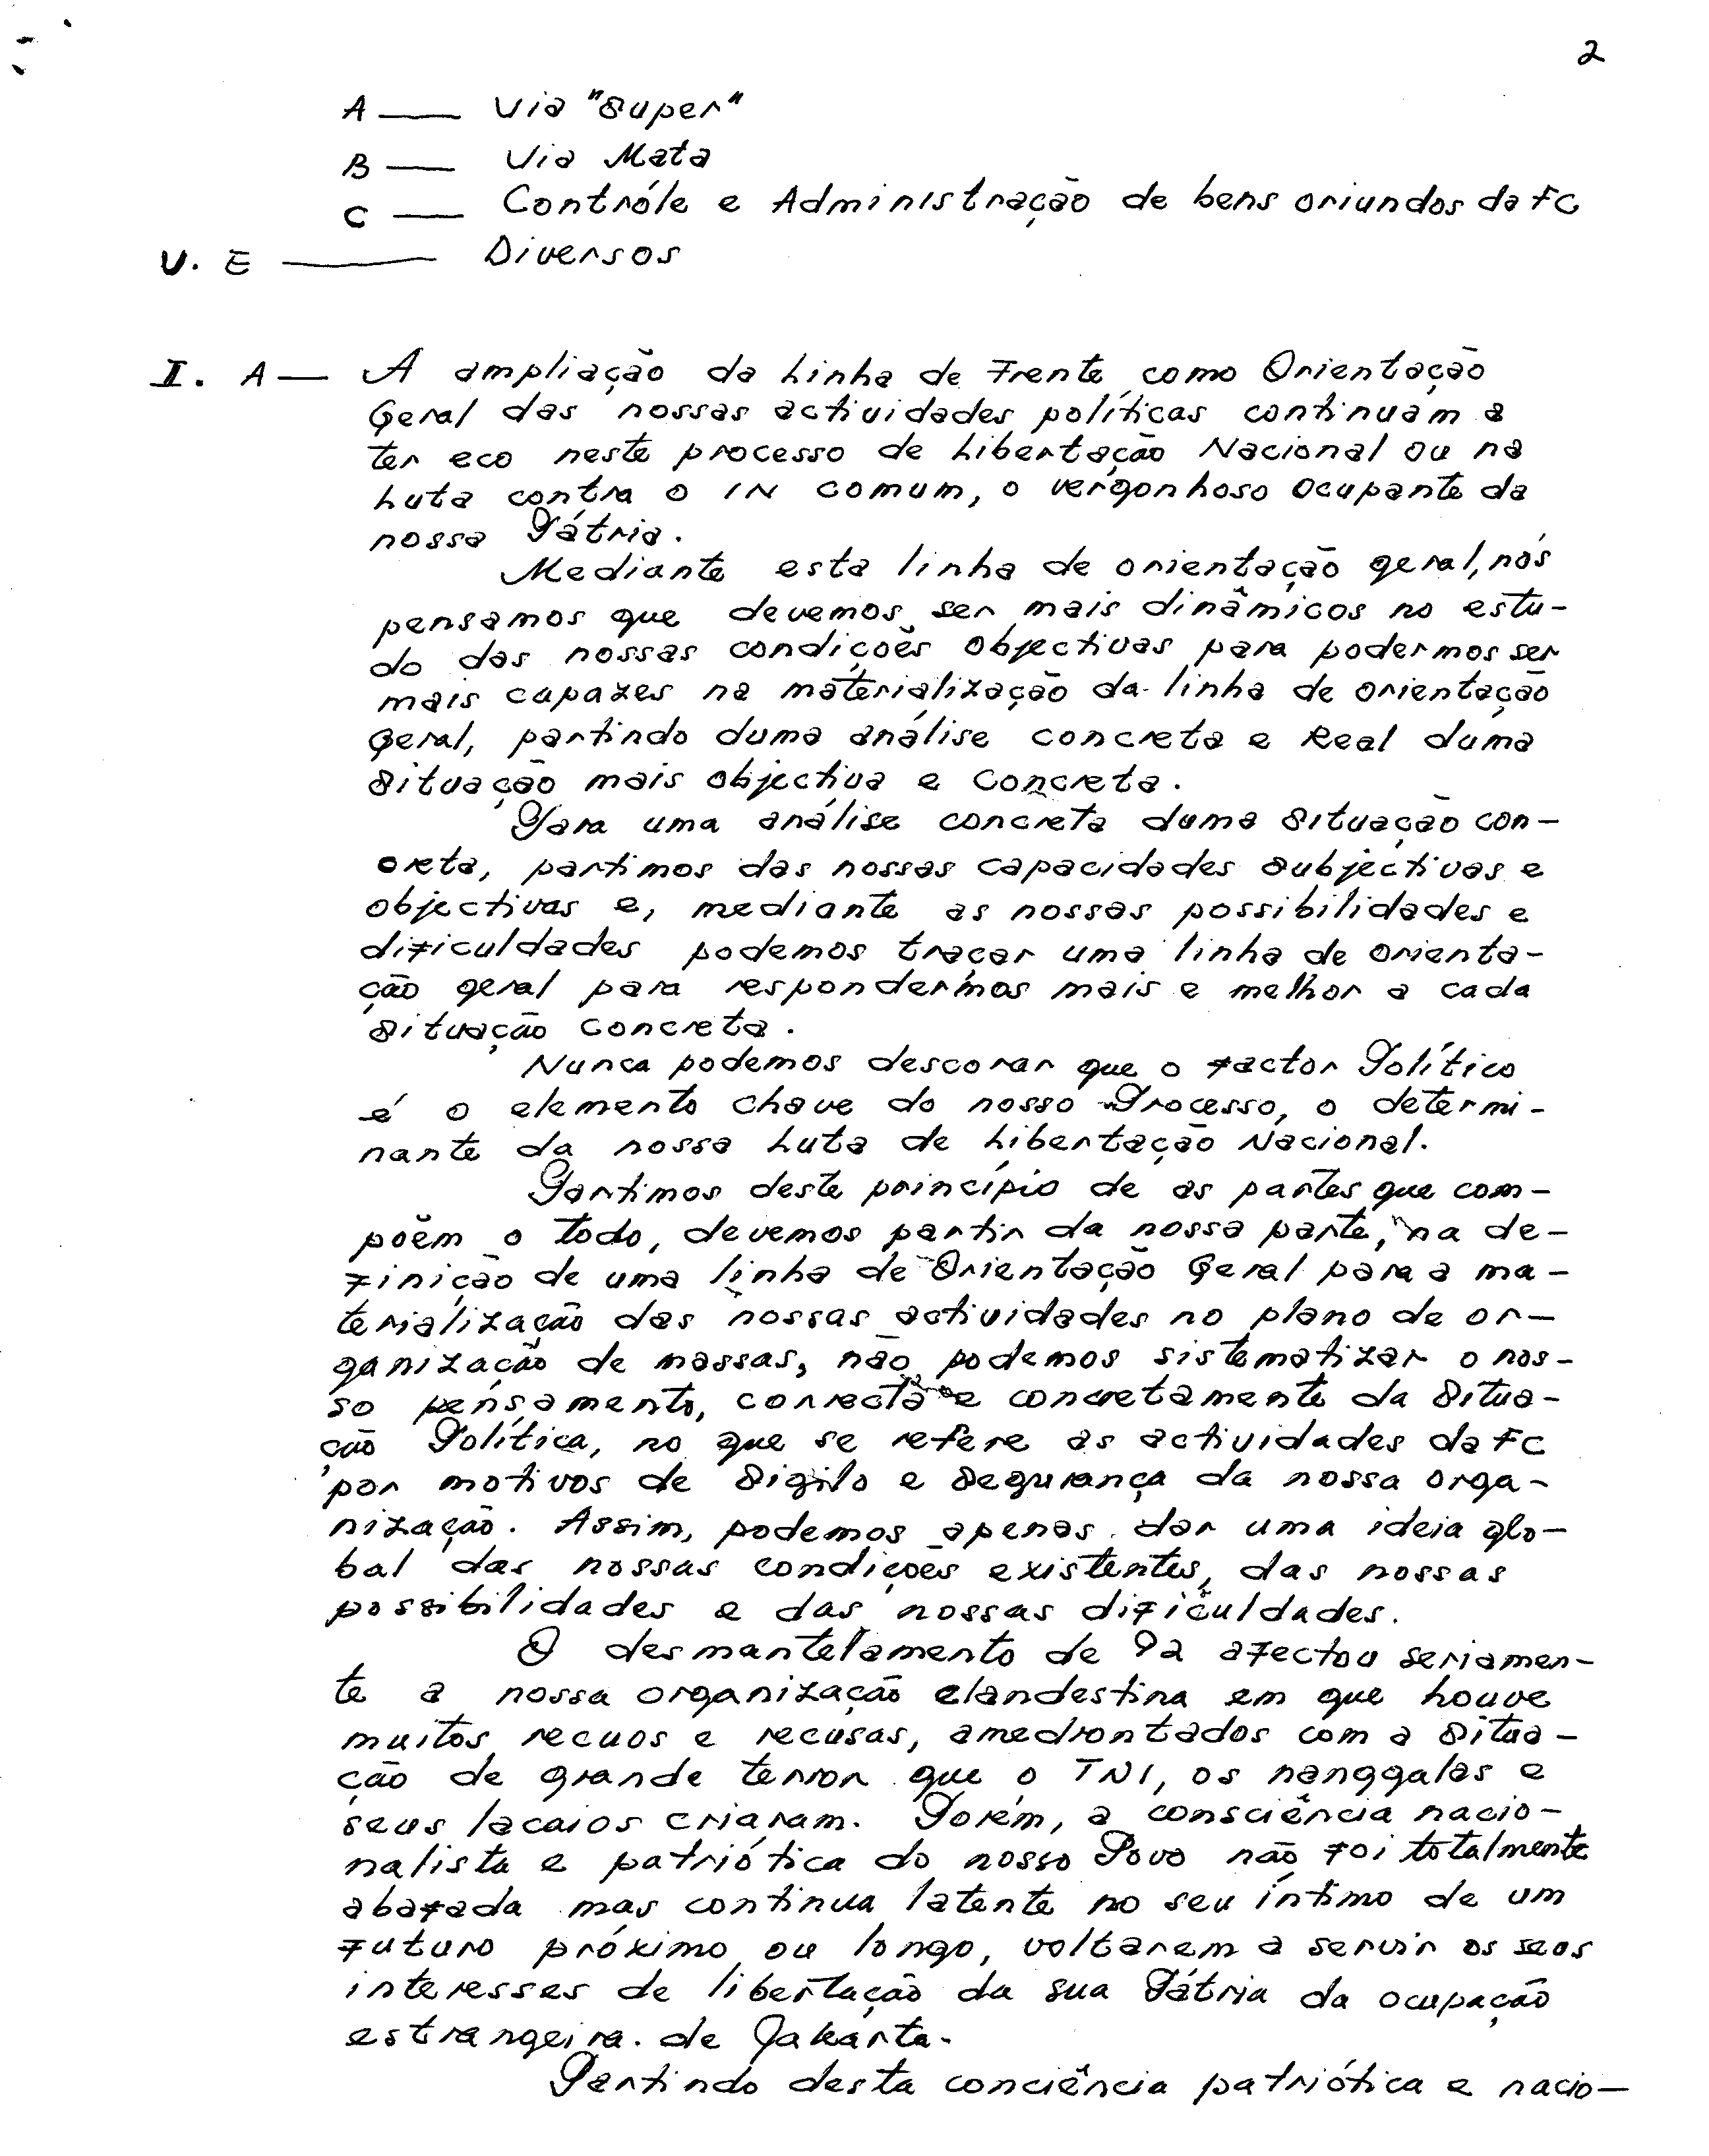 2
A — Via "Super"
B — Via Mata
C — Contrôle e Administração de bens oriundos da FC
V. E — Diversos
I. A — A ampliação da Linha de Frente como Orientação
Geral das nossas actividades políticas continuam a
ter eco neste processo de Libertação Nacional ou na
Luta contra o IN comum, o vergonhoso ocupante da
nossa Pátria.
Mediante esta linha de orientação geral, nós
pensamos que devemos ser mais dinâmicos no estu-
do das nossas condições objectivas para podermos ser
mais capazes na materialização da linha de orientação
geral, partindo duma análise concreta e Real duma
situação mais objectiva e concreta.
Para uma análise concreta duma situação con-
creta, partimos das nossas capacidades subjectivas e
objectivas e, mediante as nossas possibilidades e
dificuldades podemos traçar uma linha de orienta-
ção geral para respondermos mais e melhor a cada
situação concreta.
Nunca podemos descorar que o factor Político
é o elemento chave do nosso Processo, o determi-
nante da nossa Luta de Libertação Nacional.
Partimos deste princípio de as partes que com-
põem o todo, devemos partir da nossa parte, na de-
finição de uma linha de Orientação Geral para a ma-
terialização das nossas actividades no plano de or-
ganização de massas, não podemos sistematizar o nos-
so pensamento, correcta e concretamente da situa-
ção Política, no que se refere as actividades da FC
por motivos de sigilo e segurança da nossa orga-
nização. Assim, podemos apenas dar uma ideia glo-
bal das nossas condições existentes, das nossas
possibilidades e das nossas dificuldades.
O desmantelamento de 92 afectou seriamen-
te a nossa organização clandestina em que houve
muitos recuos e recusas, amedrontados com a situa-
ção de grande terror que o TNI, os nanggalas e
seus lacaios criaram. Porém, a consciência nacio-
nalista e patriótica do nosso Povo não foi totalmente
abafada mas continua latente no seu íntimo de um
futuro próximo ou longo, voltarem a servir os seus
interesses de libertação da sua Pátria da ocupação
estrangeira. de Jakarta.
Partindo desta conciência patriótica e nacio-